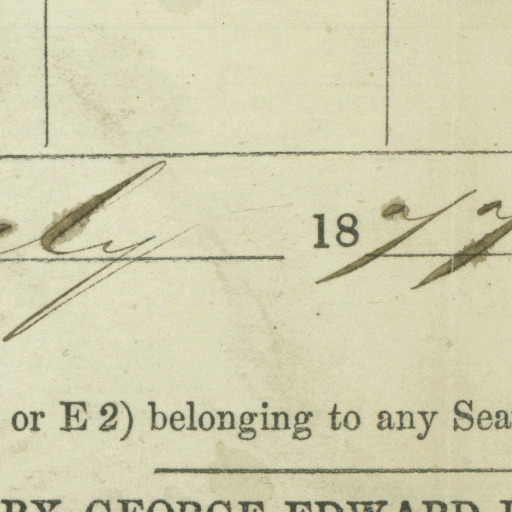 18 77
or E 2) belonging to any Sea
BY GEORGE EDWARD